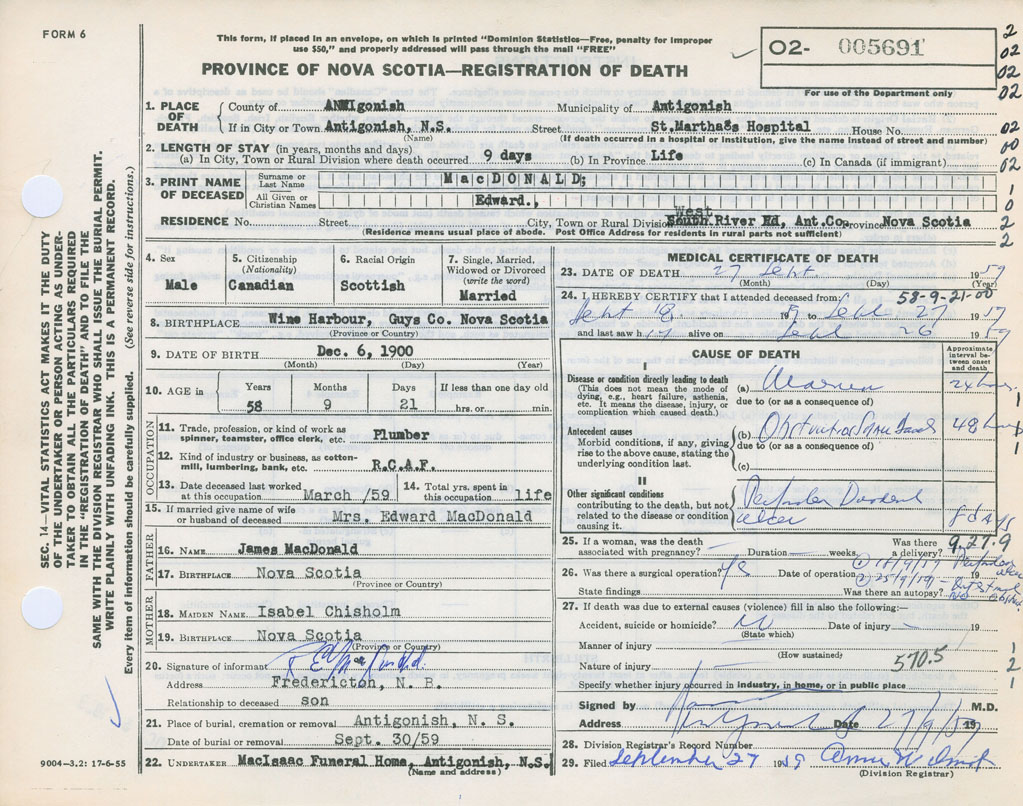 FORM 6
This form, if placed in an envelope, on which is printed "Dominion Statistics—Free, penalty for improper
use $50," and properly addressed will pass through the mail "FREE"
PROVINCE OF NOVA SCOTIA—REGISTRATION OF DEATH
O2- 005691
For use of the Department only
2
02
02
02
02
00
02
1
0
2
2
1. PLACE OF DEATH
County of Antigonish Municipality of Antigonish
If in City or Town Antigonish, N.S. Street St.Martha's Hospital House No.
(Name) (If death occurred in a hospital or institution, give the name instead of street and number)
2. LENGTH OF STAY (in years, months and days)
(a) In City, Town or Rural Division where death occurred 9 days (b) In Province Life (c) In Canada (if immigrant)
3. PRINT NAME OF DECEASED
Surname or Last Name MacDONALD;
All Given or Christian Names Edward.,
West
RESIDENCE No. Street City, Town or Rural Division South River Rd, Ant.Co. Province Nova Scotia
(Residence means usual place of abode. Post Office Address for residents in rural parts not sufficient)
4. Sex
Male
5. Citizenship
(Nationality)
Canadian
6. Racial Origin
Scottish
7. Single, Married,
Widowed or Divorced
(write the word)
Married
8. BIRTHPLACE Wine Harbour, Guys Co. Nova Scotia
(Province or Country)
9. DATE OF BIRTH Dec. 6, 1900
(Month) (Day) (Year)
10. AGE in
Years Months Days If less than one day old
58 9 21 hrs. or min.
OCCUPATION
11. Trade, profession, or kind of work as
spinner, teamster, office clerk, etc. Plumber
12. Kind of industry or business, as cotton-
mill, lumbering, bank, etc. R.C.A.F.
13. Date deceased last worked
at this occupation March /59
14. Total yrs. spent in
this occupation life
15. If married give name of wife
or husband of deceased Mrs. Edward MacDonald
FATHER
16. NAME James MacDonald
17. BIRTHPLACE Nova Scotia
(Province or Country)
MOTHER
18. MAIDEN NAME Isabel Chisholm
19. BIRTHPLACE Nova Scotia
(Province or Country)
20. Signature of informant
Address Fredericton, N. B.
Relationship to deceased son
21. Place of burial, cremation or removal Antigonish, N. S.
Date of burial or removal Sept. 30/59
22. UNDERTAKER MacIsaac Funeral Home, Antigonish, N.S.
(Name and address)
MEDICAL CERTIFICATE OF DEATH
23. DATE OF DEATH 27 Sept 1959
(Month) (Day) (Year)
24. I HEREBY CERTIFY that I attended deceased from: 58-9-21-00
Sept 18 19 to Sept 27 1959
and last saw h alive on Sept 26 1959
CAUSE OF DEATH
Approximate
interval be-
tween onset
and death
I
Disease or condition directly leading to death
(This does not mean the mode of
dying, e.g., heart failure, asthenia,
etc. It means the disease, injury, or
complication which caused death.)
(a) 24 hours
due to (or as a consequence of)
1
Antecedent causes
Morbid conditions, if any, giving
rise to the above cause, stating the
underlying condition last.
(b) Obstruction 48 hours
due to (or as a consequence of)
1
(c)
II
Other significant conditions
contributing to the death, but not
related to the disease or condition
causing it.
Duodenal
ulcer 8 days
25. If a woman, was the death
associated with pregnancy? Duration weeks.
Was there
a delivery?
9.27.9
26. Was there a surgical operation? Yes Date of operation 19
① 18/9/19
② 25/9/19
State findings Was there an autopsy? No
27. If death was due to external causes (violence) fill in also the following:—
Accident, suicide or homicide? No Date of injury 19
(State which)
Manner of injury
(How sustained)
570.5
1
Nature of injury
2
Specify whether injury occurred in industry, in home, or in public place
1
Signed by M.D.
Address Antigonish Date 27/9/1959
28. Division Registrar's Record Number
29. Filed September 27 1959
(Division Registrar)
9004—3.2: 17-6-55
SEC. 14—VITAL STATISTICS ACT MAKES IT THE DUTY
OF THE UNDERTAKER OR PERSON ACTING AS UNDER-
TAKER TO OBTAIN ALL THE PARTICULARS REQUIRED
IN THE "REGISTRATION OF DEATH" AND TO FILE THE
SAME WITH THE DIVISION REGISTRAR WHO SHALL ISSUE THE BURIAL PERMIT.
WRITE PLAINLY WITH UNFADING INK. THIS IS A PERMANENT RECORD.
Every item of information should be carefully supplied. (See reverse side for instructions.)